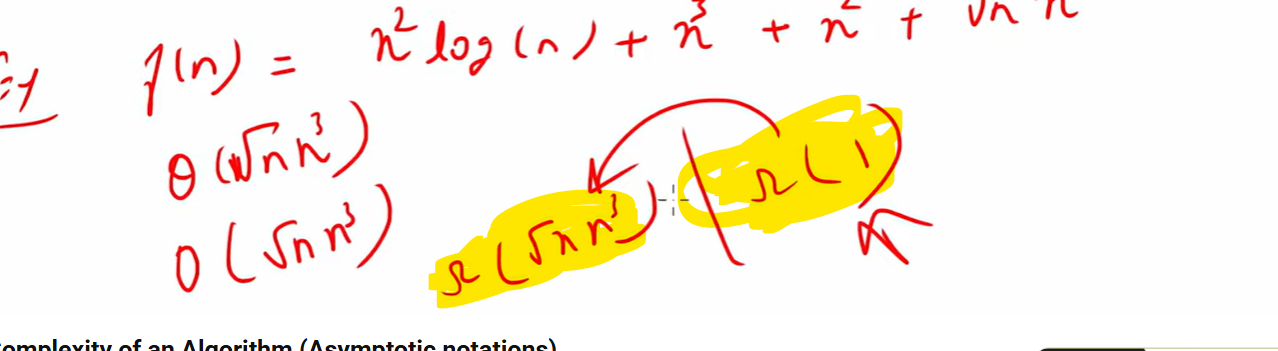 f(n) = n² log(n) + n³ + n² + √n n
θ(√n n³)
O(√n n³) Ω(√n n³) Ω(1)
Complexity of an Algorithm (Asymptotic notations)